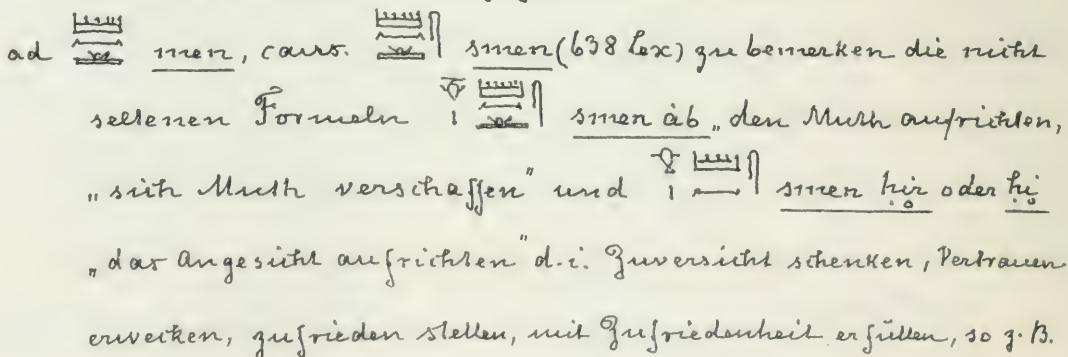 ad 𓏠𓈖𓏛 men, caus. 𓋴𓏠𓈖𓏛 smen (638 Lex) zu bemerken die nicht
seltenen Formeln 𓋴𓏠𓈖𓏛𓄣𓏤 smen àb „den Muth aufrichten,
„sich Muth verschaffen" und 𓋴𓏠𓈖𓁷𓏤 smen ḥir oder ḥi
„das Angesicht aufrichten" d.i. Zuversicht schenken, Vertrauen
erwecken, zufrieden stellen, mit Zufriedenheit erfüllen, so z.B.